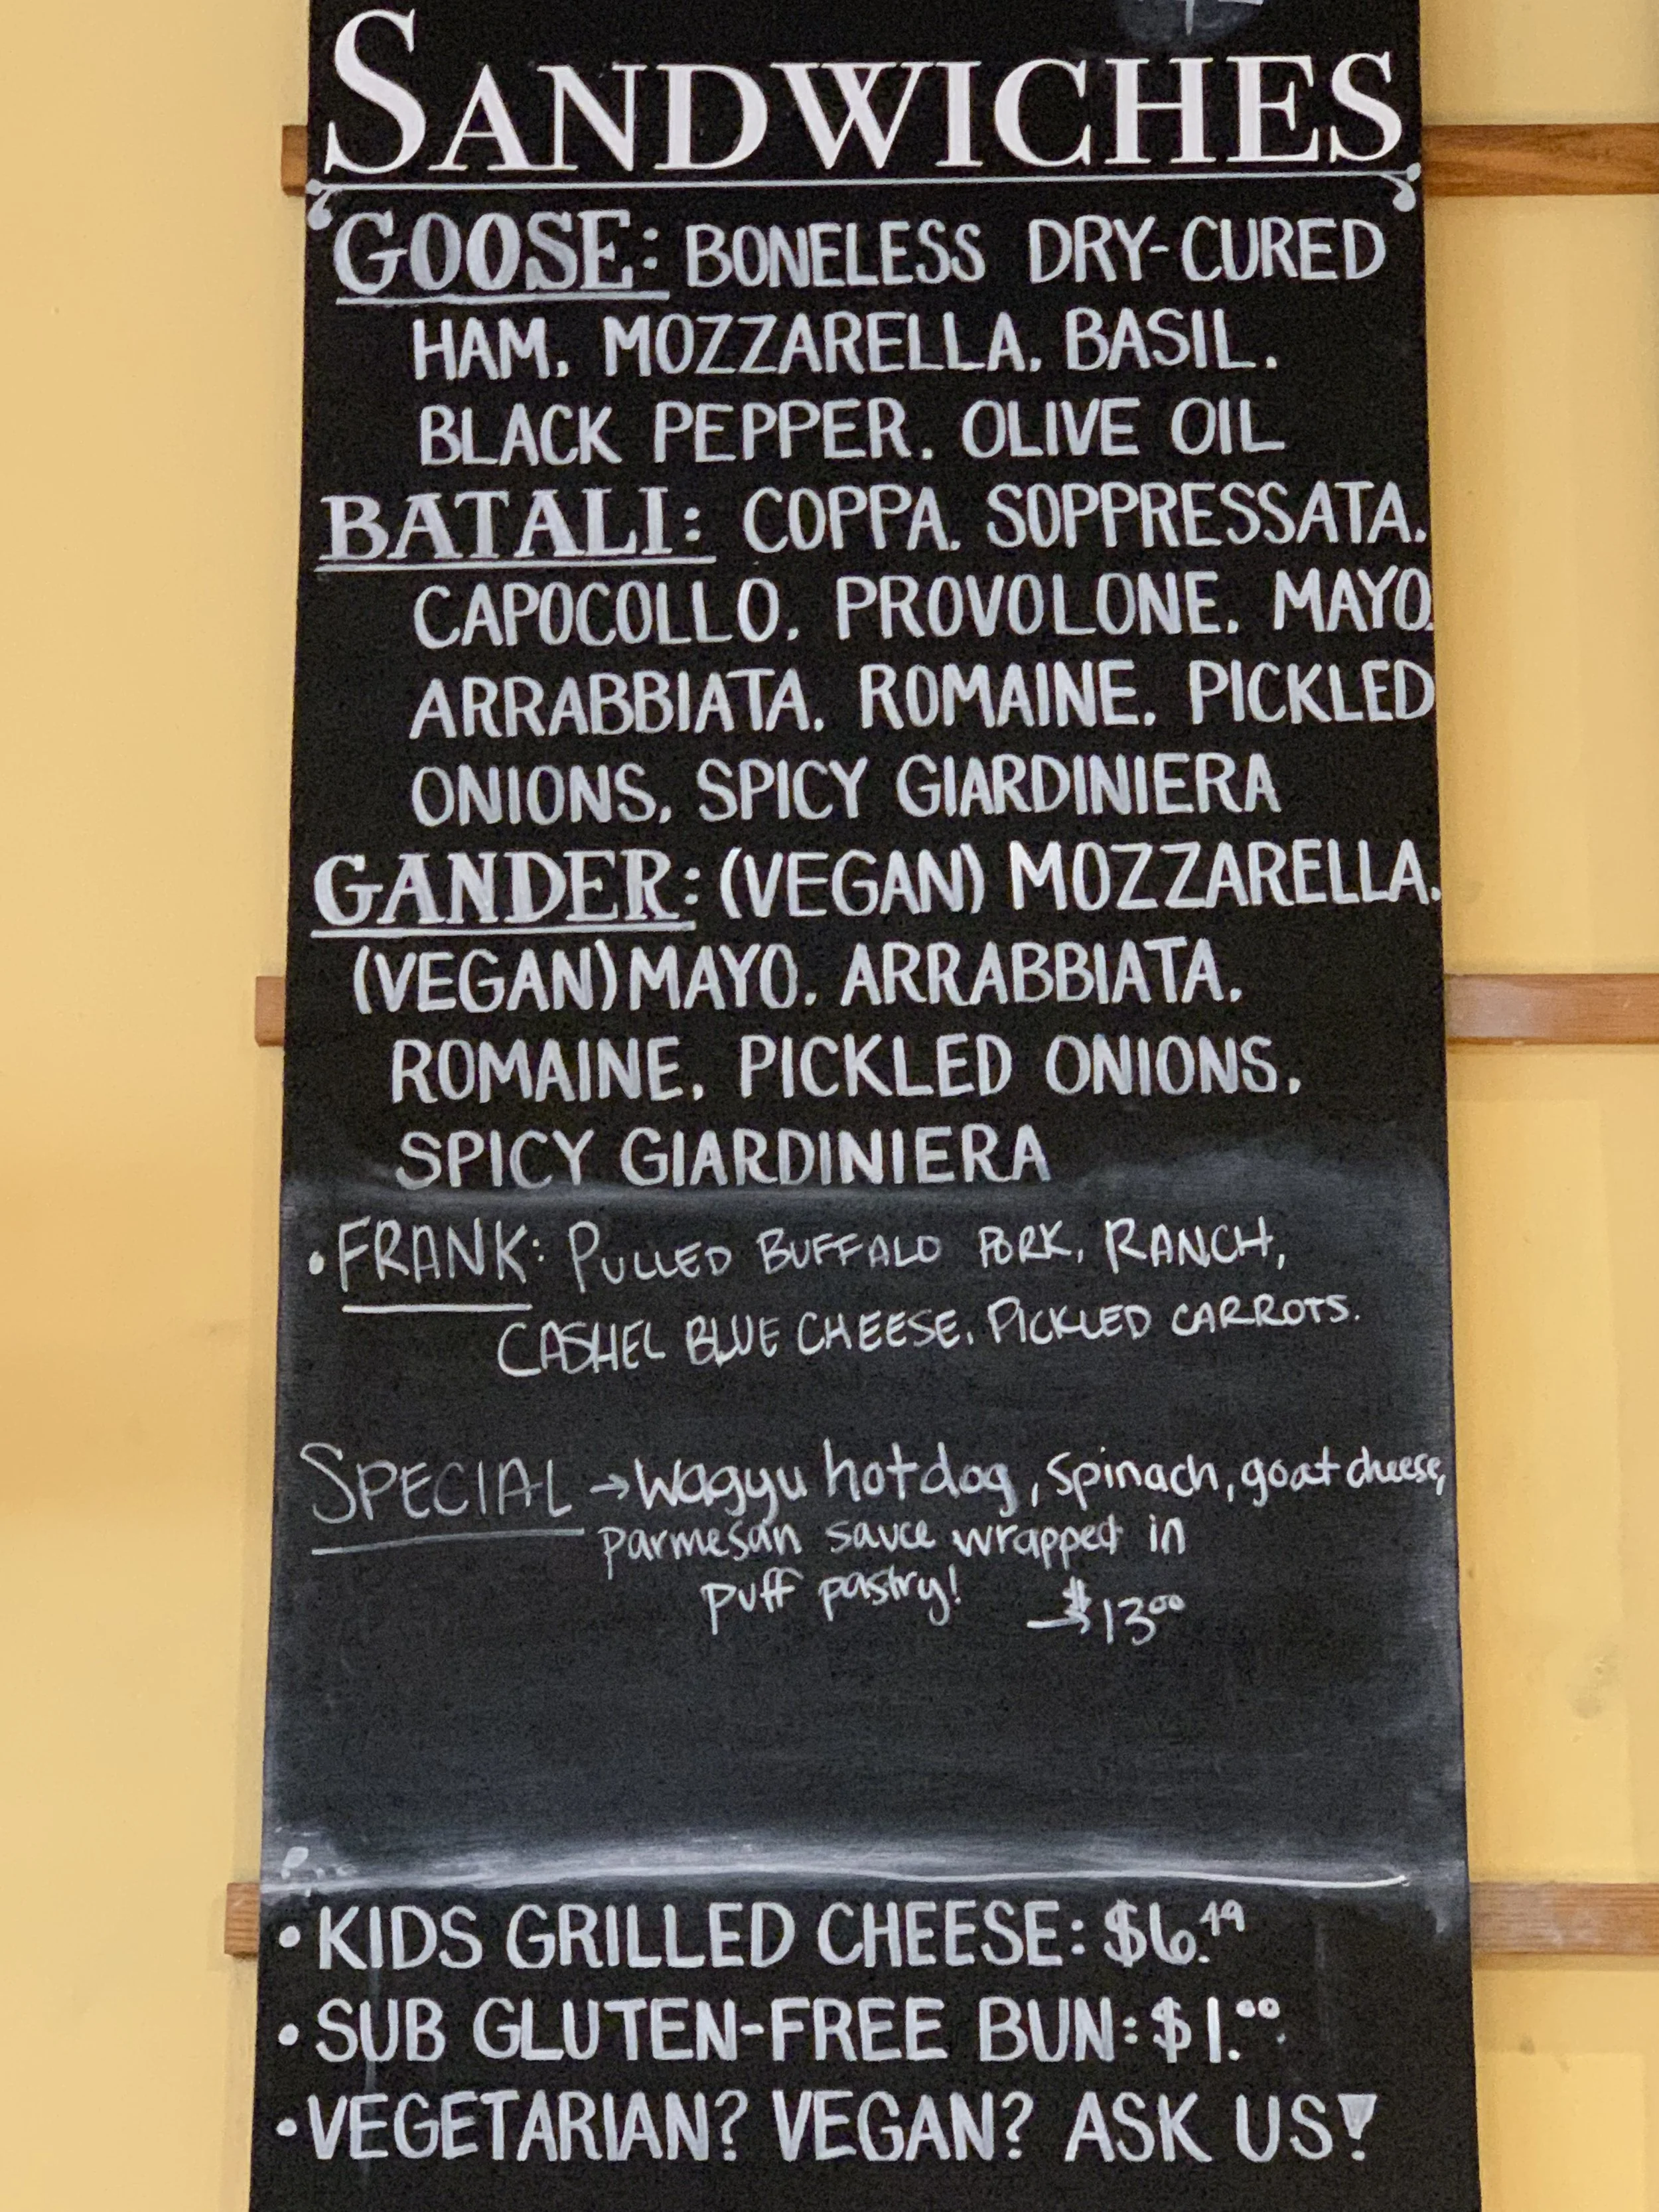 SANDWICHES
GOOSE: BONELESS DRY-CURED
HAM. MOZZARELLA. BASIL.
BLACK PEPPER. OLIVE OIL
BATALI: COPPA. SOPPRESSATA.
CAPOCOLLO. PROVOLONE. MAYO.
ARRABBIATA. ROMAINE. PICKLED
ONIONS. SPICY GIARDINIERA
GANDER: (VEGAN) MOZZARELLA.
(VEGAN) MAYO. ARRABBIATA.
ROMAINE. PICKLED ONIONS.
SPICY GIARDINIERA
• FRANK: PULLED BUFFALO PORK, RANCH,
CASHEL BLUE CHEESE, PICKLED CARROTS.
SPECIAL → Wagyu hotdog, spinach, goat cheese,
parmesan sauce wrapped in
puff pastry! $13.00
• KIDS GRILLED CHEESE: $6.49
• SUB GLUTEN-FREE BUN: $1.00
• VEGETARIAN? VEGAN? ASK US!